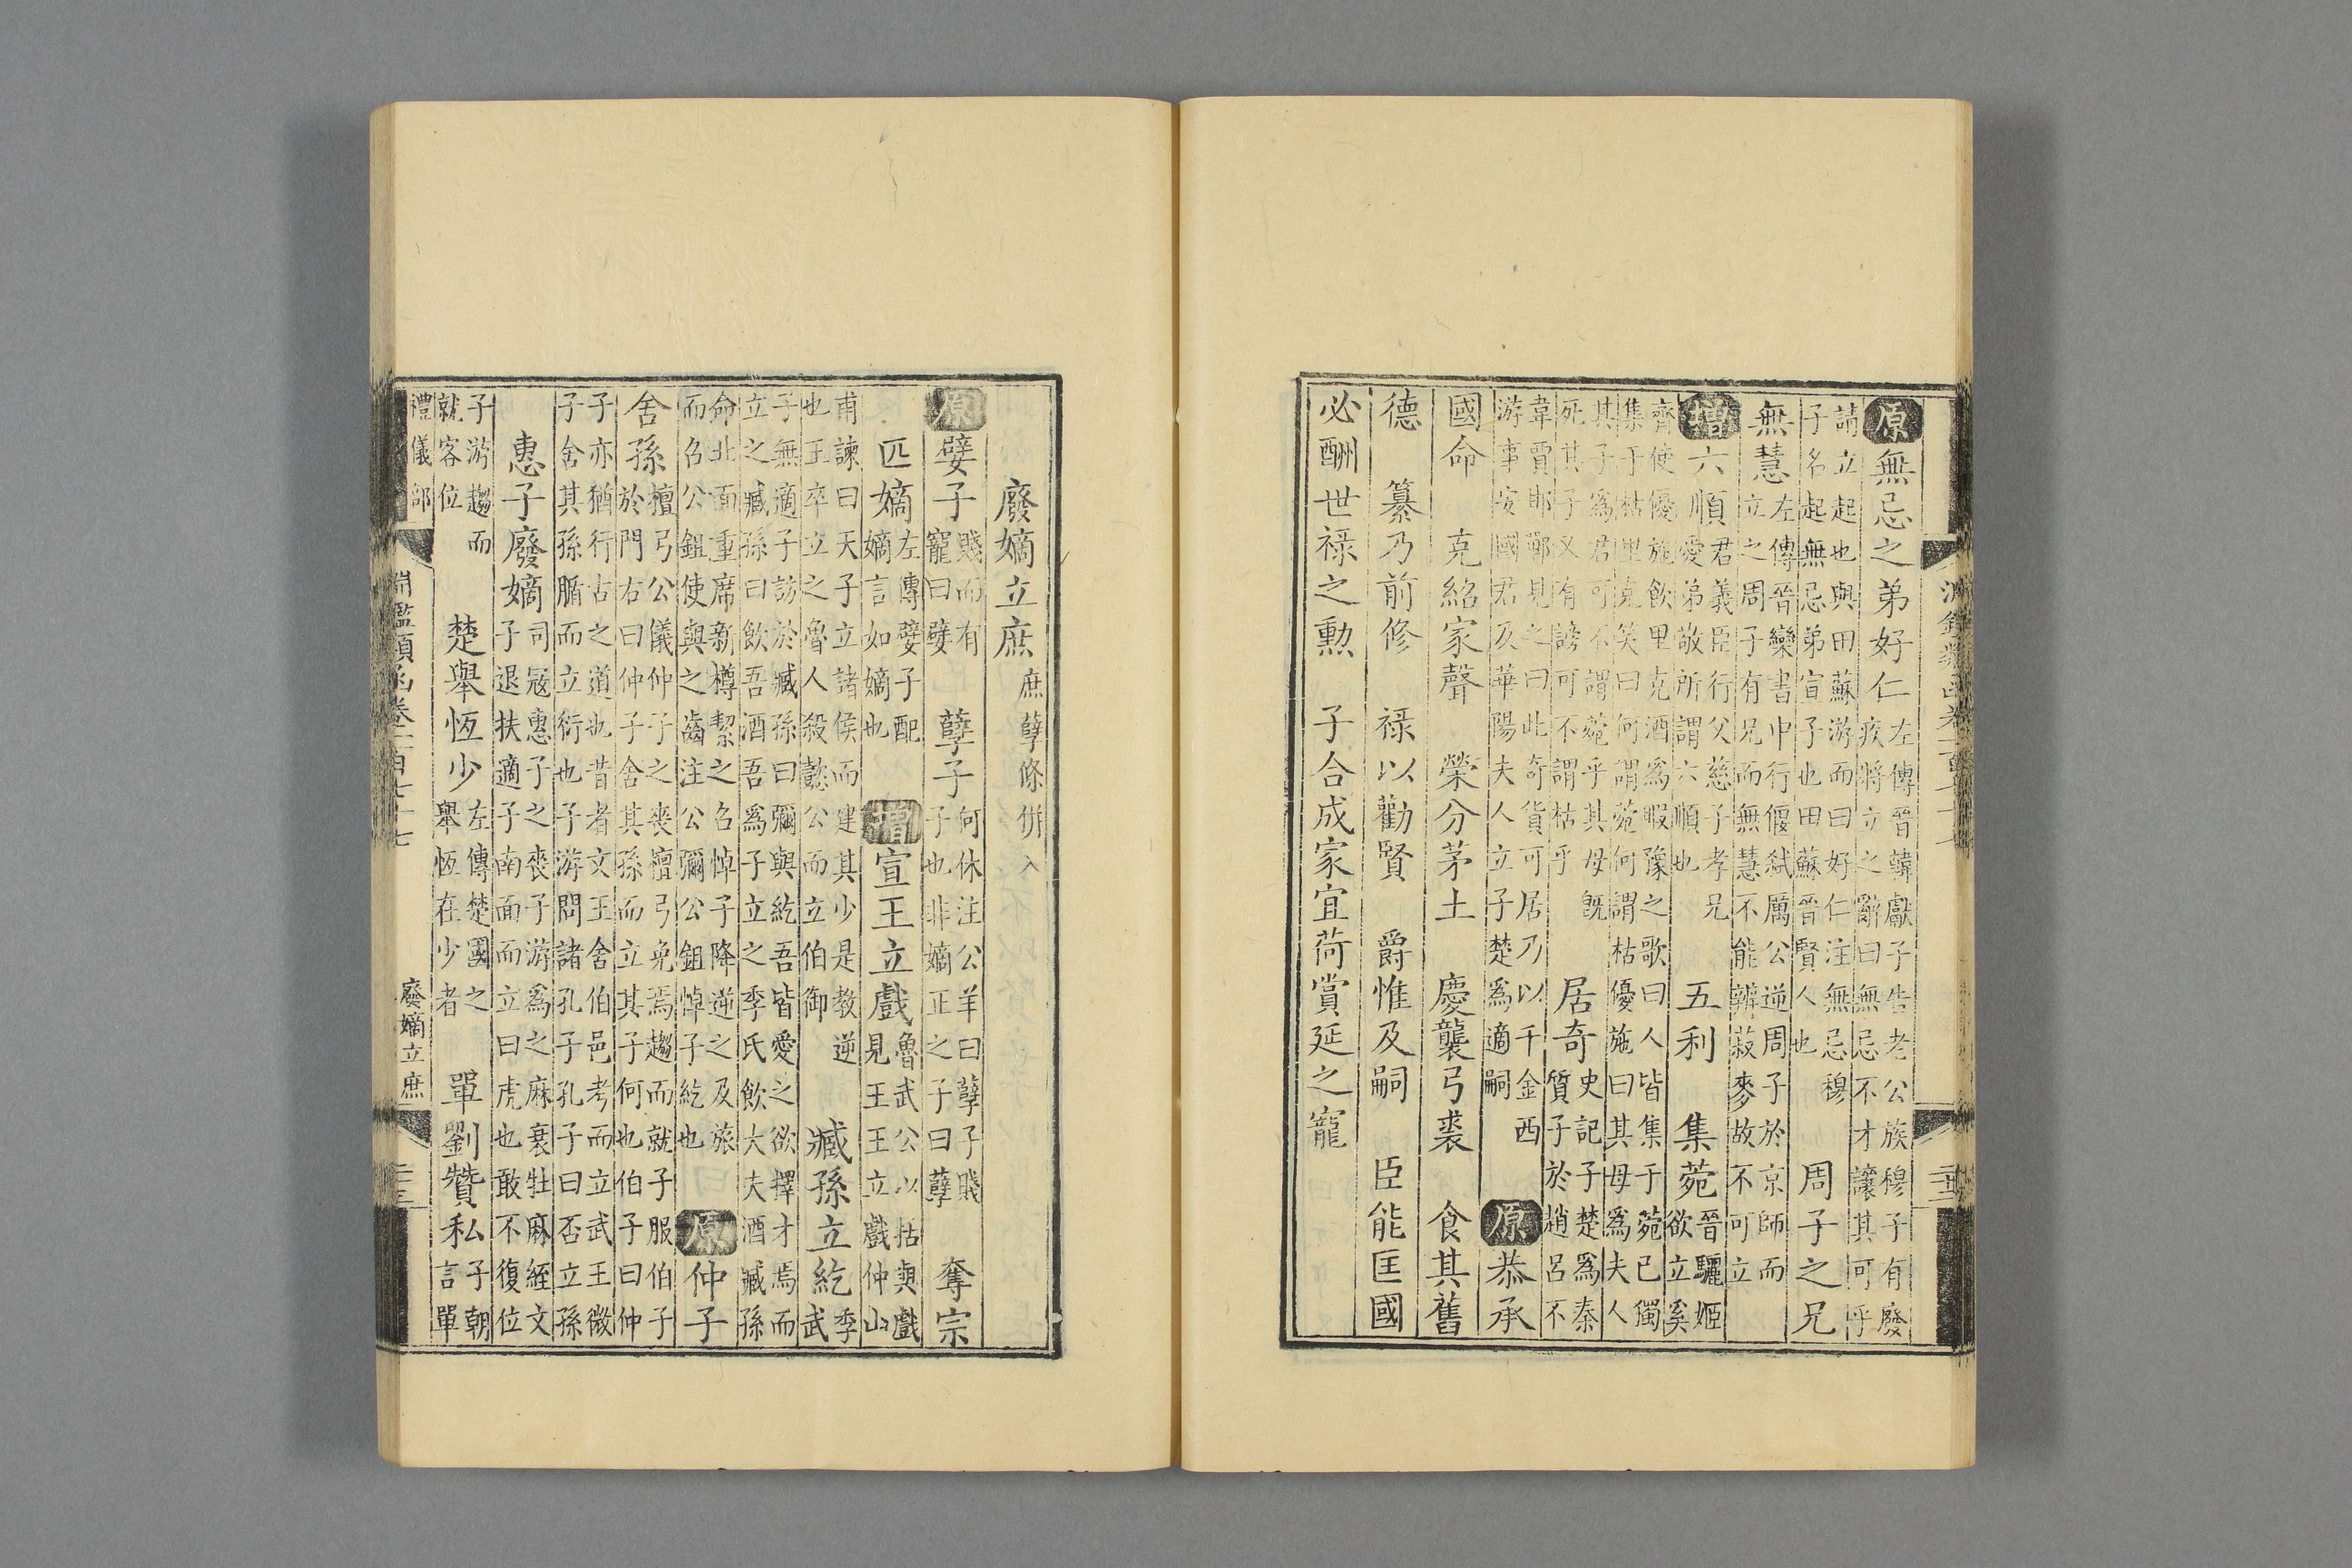 原無忌之弟好仁
左傳晉韓獻子告老公族穆子有廢
疾將立之辭曰無忌不才讓其可乎
請立起也與田蘇游而曰好仁注無忌穆
子名起無忌弟宣子也田蘇晉賢人也
周子之兄
無慧
左傳晉欒書中行偃弒厲公逆周子於京師而
立之周子有兄而無慧不能辨菽麥故不可立
增六順
君義臣行父慈子孝兄
愛弟敬所謂六順也
五利 集菀
晉驪姬
欲立奚
齊使優施飲里克酒爲暇豫之歌曰人皆集于菀已獨
集于枯里克笑曰何謂菀何謂枯優施曰其母爲夫人
其子爲君可不謂菀乎其母既
死其子又有謗可不謂枯乎
居奇
史記子楚爲秦
質子於趙呂不
韋賈邯鄲見之曰此奇貨可居乃以千金西
游事安國君及華陽夫人立子楚爲適嗣
原恭承
國命 克紹家聲 榮分茅土 慶襲弓裘 食其舊
德 纂乃前修 祿以勸賢 爵惟及嗣 臣能匡國
必酬世祿之勳 子合成家宜荷賞延之寵
廢嫡立庶
庶孽條併入
原嬖子
賤而有
寵曰嬖
孽子
何休注公羊曰孽子賤
子也非嫡正之子曰孽
奪宗
匹嫡
左傳嬖子配
嫡言如嫡也
增宣王立戲
魯武公以括與戲
見王王立戲仲山
甫諫曰天子立諸侯而建其少是教逆
也王卒立之魯人殺懿公而立伯御
臧孫立紇
季
武
子無適子訪於臧孫曰彌與紇吾皆愛之欲擇才焉而
立之臧孫曰飲吾酒吾爲子立之季氏飲大夫酒臧孫
命北面重席新樽絜之召悼子降逆之及旅
而召公鉏使與之齒注公彌公鉏悼子紇也
原仲子
舍孫
檀弓公儀仲子之喪檀弓免焉趨而就子服伯子
於門右曰仲子舍其孫而立其子何也伯子曰仲
子亦猶行古之道也昔者文王舍伯邑考而立武王微
子舍其孫腯而立衍也子游問諸孔子孔子曰否立孫
惠子廢嫡
司寇惠子之喪子游爲之麻衰牡麻絰文
子退扶適子南面而立曰虎也敢不復位
子游趨而
就客位
楚舉恆少
左傳楚國之
舉恆在少者
單劉贊私
子朝
言單
禮儀部
淵鑑類函卷二百七十七
廢嫡立庶
二十三